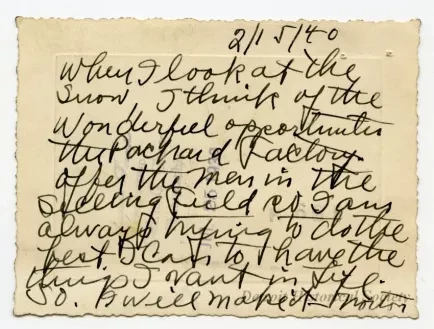 2/15/40
When I look at the
Snow, I think of the
Wonderful opportunities
the Packard Factory
offer the men in the
Selling Field so I am
always trying to do the
best I can to have the
things I want in life.
So. I will make it
Detroit Historical Society